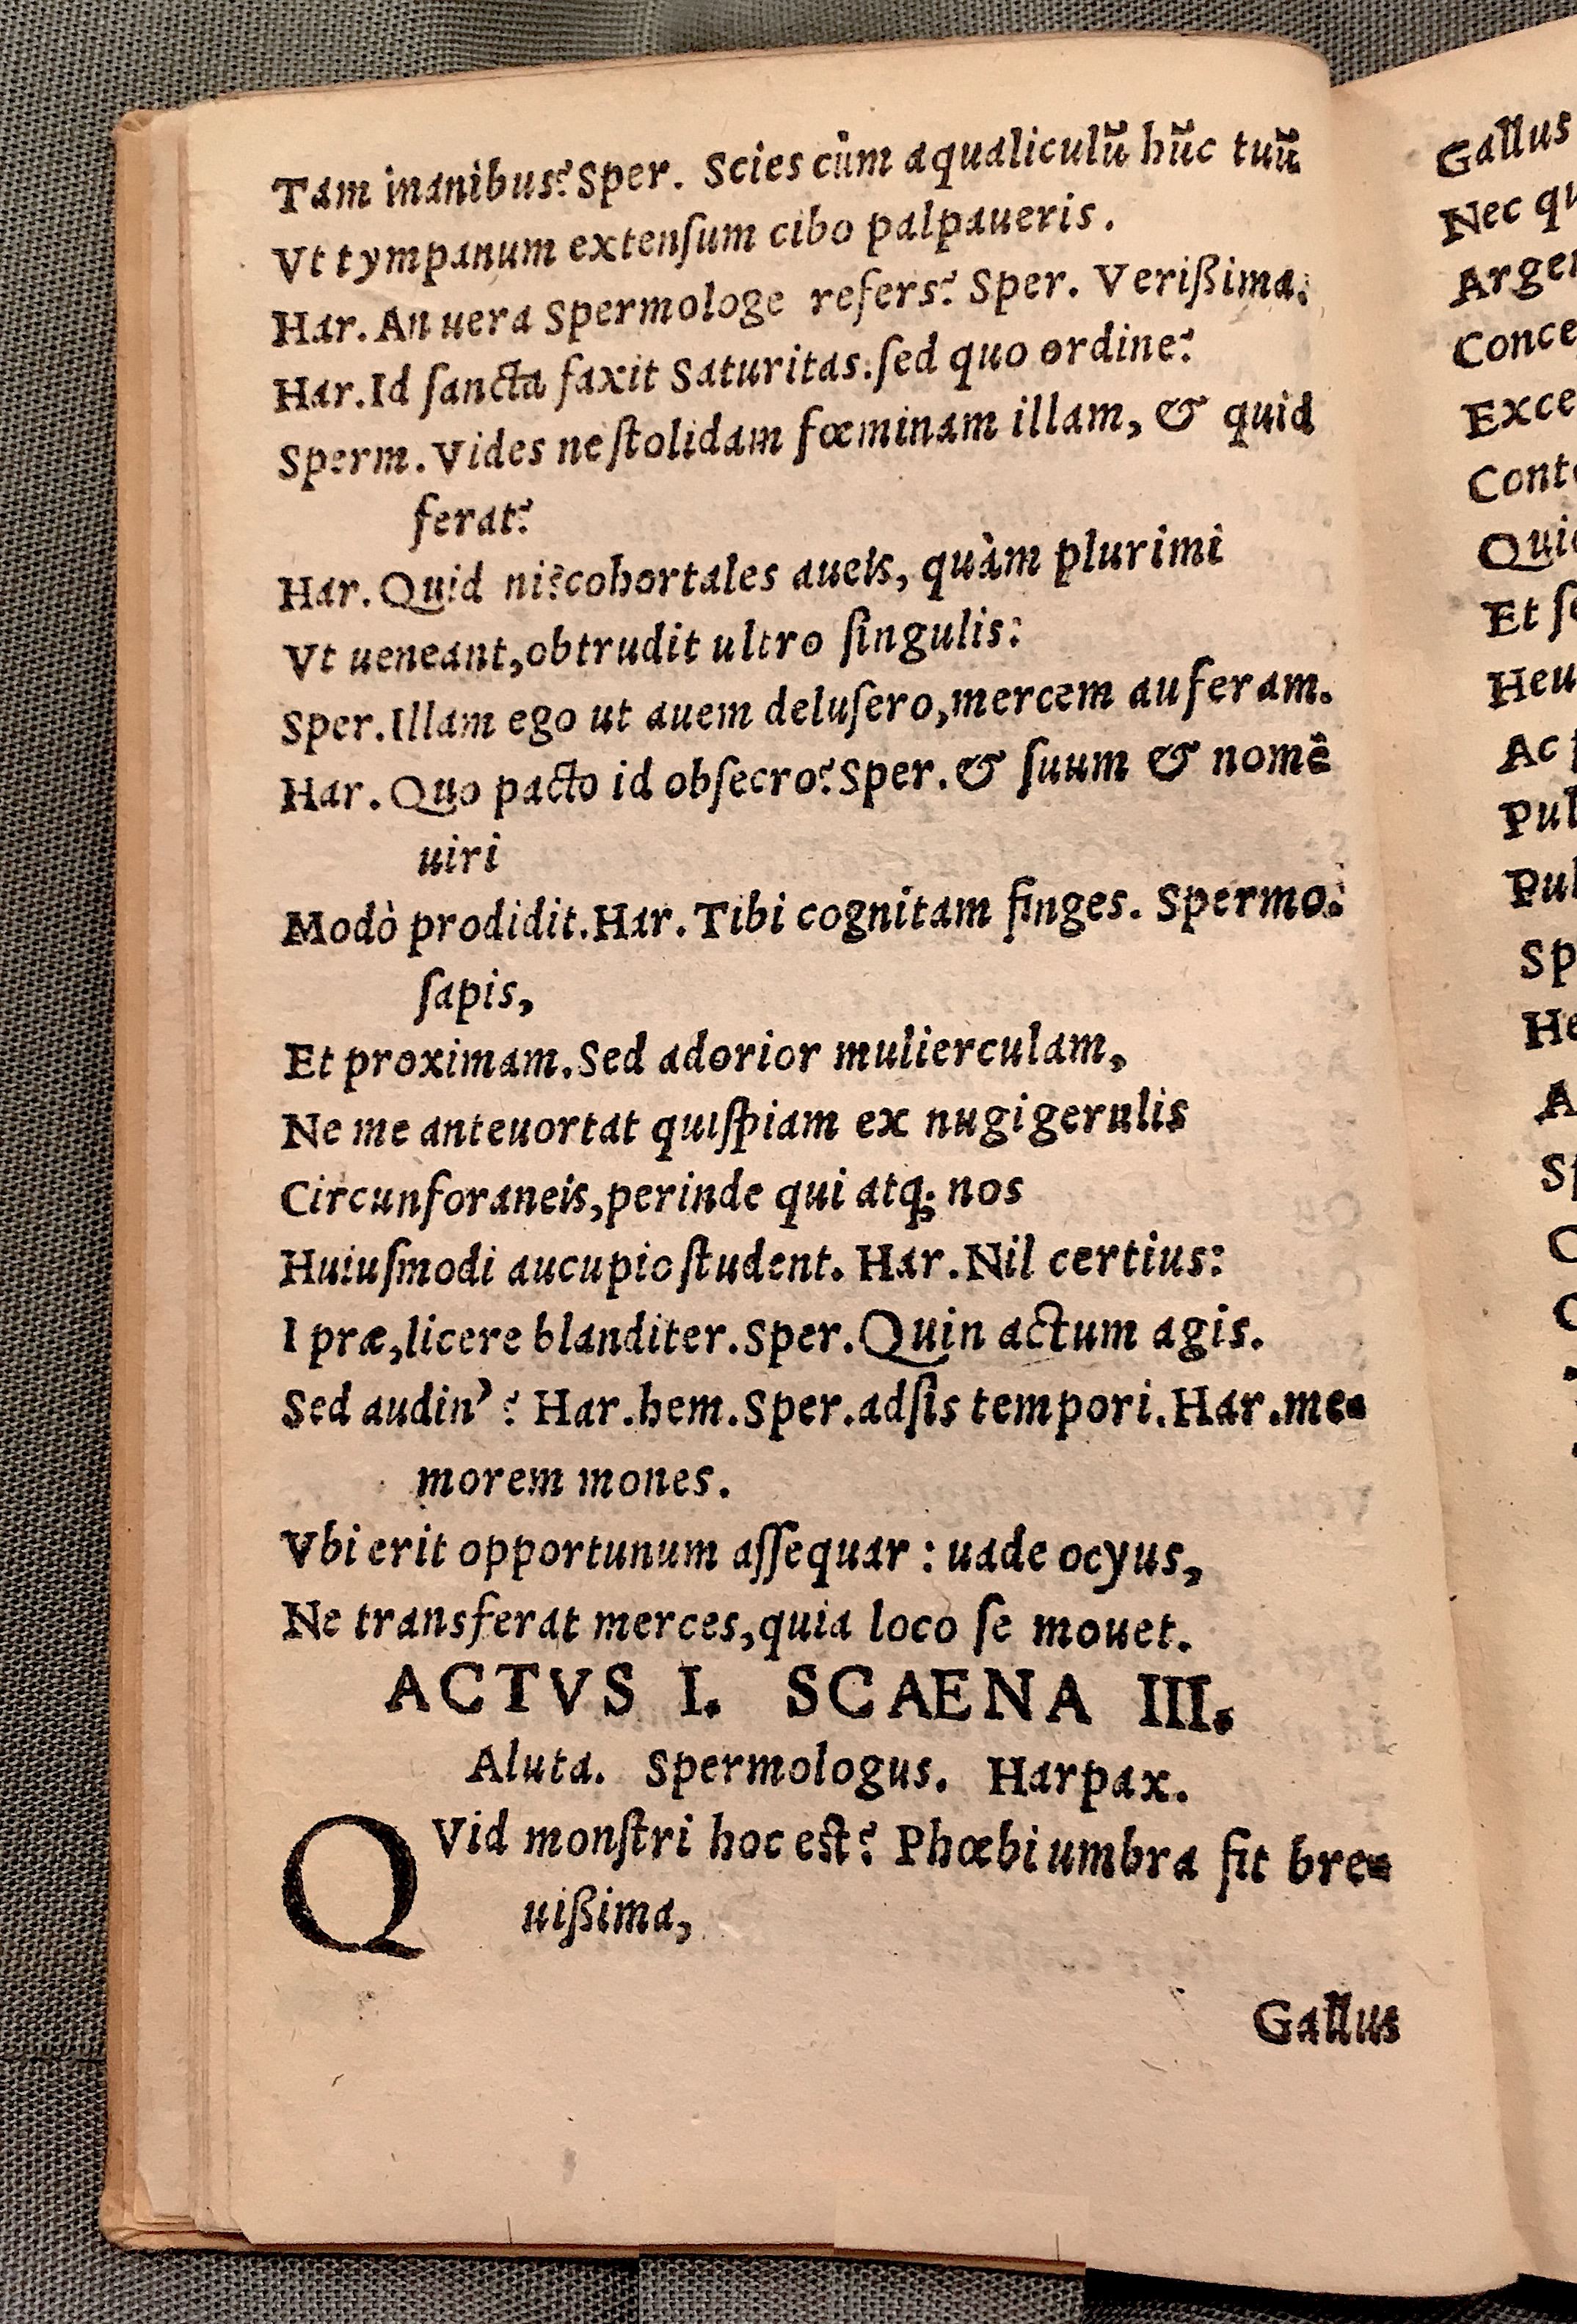 Tam inanibus? Sper. Scies cùm aqualiculũ hũc tuũ
Vt tympanum extenſum cibo palpaueris.
Har. An uera Spermologe refers? Sper. Verißima.
Har. Id ſancta faxit Saturitas: ſed quo ordine?
Sperm. Vides ne ſtolidam fœminam illam, & quid
ferat?
Har. Quid ni? cohortales aueis, quàm plurimi
Vt ueneant, obtrudit ultro ſingulis:
Sper. Illam ego ut auem deluſero, mercem auferam.
Har. Quo pacto id obſecro? Sper. & ſuum & nomẽ
uiri
Modò prodidit. Har. Tibi cognitam finges. Spermo.
ſapis,
Et proximam. Sed adorior mulierculam,
Ne me anteuortat quiſpiam ex nugigerulis
Circunforaneis, perinde qui atq; nos
Huiuſmodi aucupio ſtudent. Har. Nil certius:
I præ, licere blanditer. Sper. Quin actum agis.
Sed audin' ? Har. hem. Sper. adſis tempori. Har. me-
morem mones.
Vbi erit opportunum aſſequar : uade ocyus,
Ne transferat merces, quia loco ſe mouet.
ACTVS I. SCAENA III.
Aluta. Spermologus. Harpax.
QVid monſtri hoc eſt? Phœbi umbra fit bre-
uißima,
Gallus
Gallus
Nec
Et
Ac